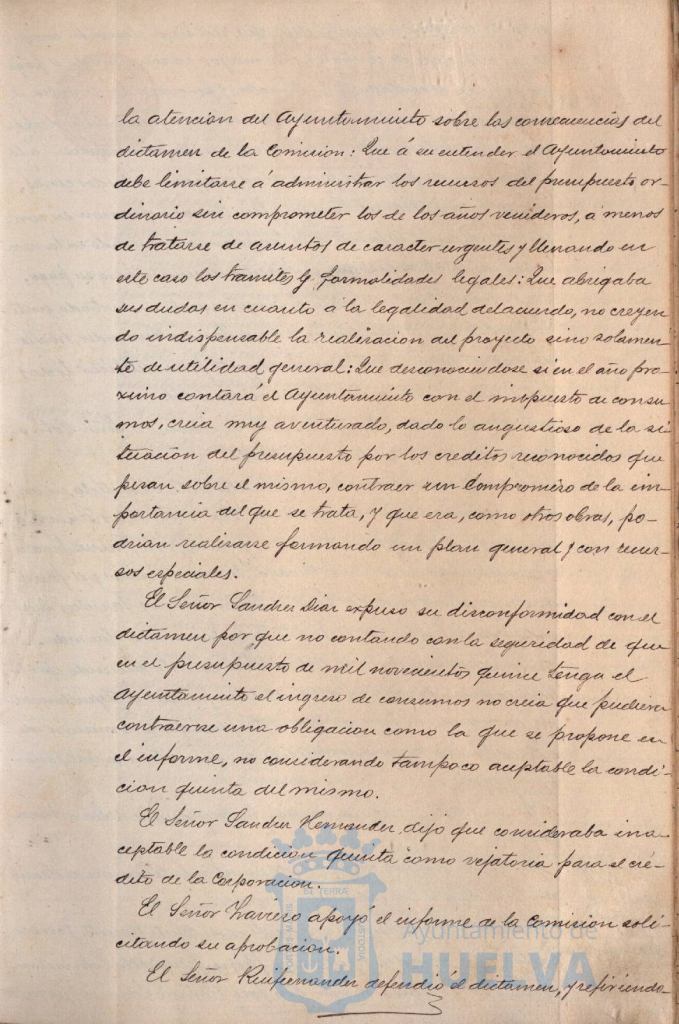 la atencion del Ayuntamiento sobre las consecuencias del
dictamen de la Comision: Que á su entender el Ayuntamiento
debe limitarse á administrar los recursos del presupuesto or-
dinario sin comprometer los de los años venideros, á menos
de tratarse de asuntos de caracter urgentes y llenando en
este caso los tramites y formalidades legales: Que abrigaba
sus dudas en cuanto á la legalidad del acuerdo, no creyen
do indispensable la realizacion del proyecto sino solamen-
te de utilidad general: Que desconociendose si en el año pro-
ximo contará el Ayuntamiento con el impuesto de consu-
mos, creia muy aventurado, dado lo angustioso de la si-
tuacion del presupuesto por los creditos reconocidos que
pesan sobre el mismo, contraer un Compromiso de la im-
portancia del que se trata, y que era, como otras obras, po-
drian realizarse formando un plan general y con recur-
sos especiales.
El Señor Sanchez Diaz expuso su disconformidad con el
dictamen por que no contando con la seguridad de que
en el presupuesto de mil novecientos quince tenga el
Ayuntamiento el ingreso de consumos no creia que pudiera
contraerse una obligacion como la que se propone en
el informe, no considerando tampoco aceptable la condi-
cion quinta del mismo.
El Señor Sanchez Hernandez dijo que consideraba ina-
ceptable la condicion quinta como vejatoria para el cré-
dito de la Corporacion.
El Señor apoyó el informe de la Comision soli-
citando su aprobacion.
El Señor Ruifernandez defendió el dictamen, y refiriendo-
Ayuntamiento de
HUELVA